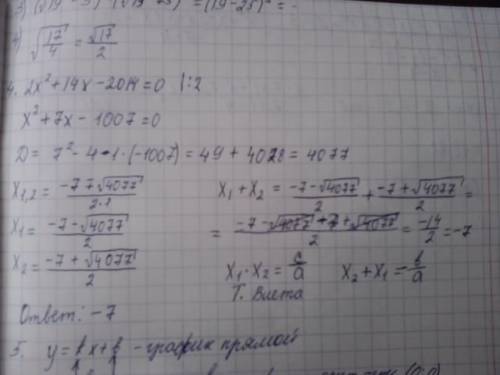 3) (√19 - 5) (√19 - 25)² = (19 - 25)² = -
4) √17/4 = √17/2
4. 2x² + 14x - 2014 = 0 |:2
x² + 7x - 1007 = 0
D = 7² - 4·1·(-1007) = 49 + 4028 = 4077
x₁,₂ = -7∓√4077/2·1
x₁ = -7-√4077/2
x₂ = -7+√4077/2
x₁ + x₂ = -7-√4077/2 + -7+√4077/2 =
= -7-√4077-7+√4077/2 = -14/2 = -7
x₁·x₂ = c/a x₂+x₁ = -b/a
Т. Виета
Ответ: -7
5. y = kx + b - график прямой
(0,0)